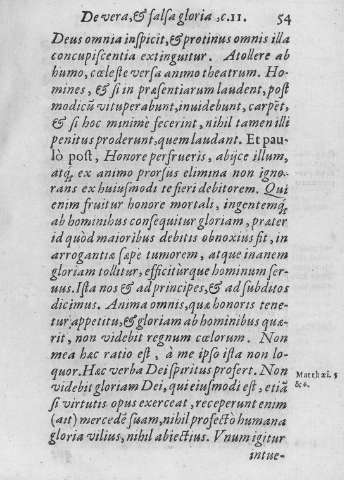 De vera, & falsa gloria, c.11. 54
Deus omnia inspicit, & protinus omnis illa
concupiscentia extinguitur. Atollere ab
humo, cœleste versa animo theatrum. Ho-
mines, & si in præsentiarum laudent, post
modicũ vituperabunt, inuidebunt, carpẽt,
& si hoc minimè fecerint, nihil tamen illi
penitus proderunt, quem laudant. Et pau-
lò post, Honore perfrueris, abijce illum,
atq; ex animo prorsus elimina non igno-
rans ex huiusmodi te fieri debitorem. Qui
enim fruitur honore mortali, ingentemq;
ab hominibus consequitur gloriam, præter
id quòd maioribus debitis obnoxius fit, in
arrogantiæ sæpe tumorem, atque inanem
gloriam tollitur, efficitúrque hominum ser-
uus. Ista nos & ad principes, & ad subditos
dicimus. Anima omnis, quæ honoris tene-
tur appetitu, & gloriam ab hominibus quæ-
rit, non videbit regnum cœlorum. Non
mea hæc ratio est, à me ipso ista non lo-
quor. Hæc verba Dei spiritus profert. Non
videbit gloriam Dei, qui eiusmodi est, etiã
si virtutis opus exerceat, receperunt enim
(ait) mercedẽ suam, nihil profectò humana
gloria vilius, nihil abiectius. Vnum igitur
intue-
Matth. xi. 5
& 6.